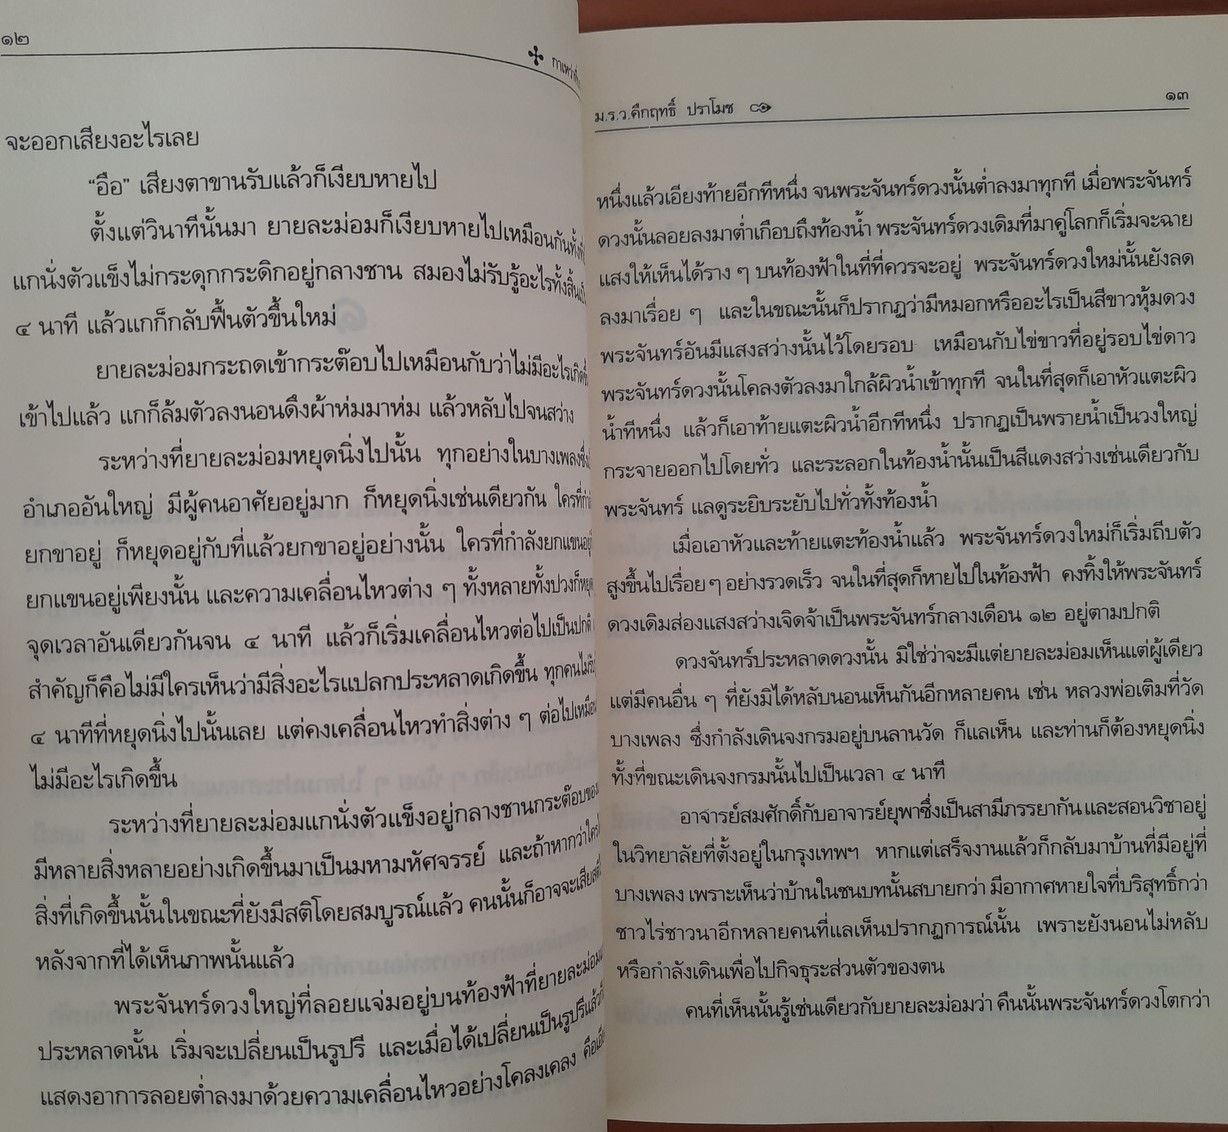 ๑๒
กาเหว่าที่
จะออกเสียงอะไรเลย
“อือ” เสียงตาขานรับแล้วก็เงียบหายไป
ตั้งแต่วินาทีนั้นมา ยายละม่อมก็เงียบหายไปเหมือนกันทั้งที่
แกนั่งตัวแข็งไม่กระดุกกระดิกอยู่กลางชาน สมองไม่รับรู้อะไรทั้งสิ้น
๔ นาที แล้วแกก็กลับฟื้นตัวขึ้นใหม่
ยายละม่อมกระถดเข้ากระต๊อบไปเหมือนกับว่าไม่มีอะไรเกิดขึ้น
เข้าไปแล้ว แกก็ล้มตัวลงนอนดึงผ้าห่มมาห่ม แล้วหลับไปจนสว่าง
ระหว่างที่ยายละม่อมหยุดนิ่งไปนั้น ทุกอย่างในบางเพลงซึ่ง
อำเภออันใหญ่ มีผู้คนอาศัยอยู่มาก ก็หยุดนิ่งเช่นเดียวกัน ใครที่
ยกขาอยู่ ก็หยุดอยู่กับที่แล้วยกขาอยู่อย่างนั้น ใครที่กำลังยกแขนอยู่
ยกแขนอยู่เพียงนั้น และความเคลื่อนไหวต่าง ๆ ทั้งหลายทั้งปวงก็หยุด
จุดเวลาอันเดียวกันจน ๔ นาที แล้วก็เริ่มเคลื่อนไหวต่อไปเป็นปกติ
สำคัญก็คือไม่มีใครเห็นว่ามีสิ่งอะไรแปลกประหลาดเกิดขึ้น ทุกคนไม่รู้
๔ นาทีที่หยุดนิ่งไปนั้นเลย แต่คงเคลื่อนไหวทำสิ่งต่าง ๆ ต่อไปเหมือน
ไม่มีอะไรเกิดขึ้น
ระหว่างที่ยายละม่อมแกนั่งตัวแข็งอยู่กลางชานกระต๊อบของ
มีหลายสิ่งหลายอย่างเกิดขึ้นมาเป็นมหามหัศจรรย์ และถ้าหากว่าใคร
สิ่งที่เกิดขึ้นนั้นในขณะที่ยังมีสติโดยสมบูรณ์แล้ว คนนั้นก็อาจจะเสียสติ
หลังจากที่ได้เห็นภาพนั้นแล้ว
พระจันทร์ดวงใหญ่ที่ลอยแจ่มอยู่บนท้องฟ้าที่ยายละม่อม
ประหลาดนั้น เริ่มจะเปลี่ยนเป็นรูปรี และเมื่อได้เปลี่ยนเป็นรูปรีแล้วก็
แสดงอาการลอยต่ำลงมาด้วยความเคลื่อนไหวอย่างโคลงเคลง คือ
ม.ร.ว.คึกฤทธิ์ ปราโมช
๑๓
หนึ่งแล้วเอียงท้ายอีกทีหนึ่ง จนพระจันทร์ดวงนั้นต่ำลงมาทุกที เมื่อพระจันทร์
ดวงนั้นลอยลงมาต่ำเกือบถึงท้องน้ำ พระจันทร์ดวงเดิมที่มาคู่โลกก็เริ่มจะฉาย
แสงให้เห็นได้ราง ๆ บนท้องฟ้าในที่ที่ควรจะอยู่ พระจันทร์ดวงใหม่นั้นยังลด
ลงมาเรื่อย ๆ และในขณะนั้นก็ปรากฏว่ามีหมอกหรืออะไรเป็นสีขาวหุ้มดวง
พระจันทร์อันมีแสงสว่างนั้นไว้โดยรอบ เหมือนกับไข่ขาวที่อยู่รอบไข่ดาว
พระจันทร์ดวงนั้นโคลงตัวลงมาใกล้ผิวน้ำเข้าทุกที จนในที่สุดก็เอาหัวแตะผิว
น้ำทีหนึ่ง แล้วก็เอาท้ายแตะผิวน้ำอีกทีหนึ่ง ปรากฏเป็นพรายน้ำเป็นวงใหญ่
กระจายออกไปโดยทั่ว และระลอกในท้องน้ำนั้นเป็นสีแดงสว่างเช่นเดียวกับ
พระจันทร์ แลดูระยิบระยับไปทั่วทั้งท้องน้ำ
เมื่อเอาหัวและท้ายแตะท้องน้ำแล้ว พระจันทร์ดวงใหม่ก็เริ่มถีบตัว
สูงขึ้นไปเรื่อย ๆ อย่างรวดเร็ว จนในที่สุดก็หายไปในท้องฟ้า คงทิ้งให้พระจันทร์
ดวงเดิมส่องแสงสว่างเจิดจ้าเป็นพระจันทร์กลางเดือน ๑๒ อยู่ตามปกติ
ดวงจันทร์ประหลาดดวงนั้น มิใช่ว่าจะมีแต่ยายละม่อมเห็นแต่ผู้เดียว
แต่มีคนอื่น ๆ ที่ยังมิได้หลับนอนเห็นกันอีกหลายคน เช่น หลวงพ่อเติมที่วัด
บางเพลง ซึ่งกำลังเดินจงกรมอยู่บนลานวัด ก็แลเห็น และท่านก็ต้องหยุดนิ่ง
ทั้งที่ขณะเดินจงกรมนั้นไปเป็นเวลา ๔ นาที
อาจารย์สมศักดิ์กับอาจารย์ยุพาซึ่งเป็นสามีภรรยากัน และสอนวิชาอยู่
ในวิทยาลัยที่ตั้งอยู่ในกรุงเทพฯ หากแต่เสร็จงานแล้วก็กลับมาบ้านที่มีอยู่ที่
บางเพลง เพราะเห็นว่าบ้านในชนบทนั้นสบายกว่า มีอากาศหายใจที่บริสุทธิ์กว่า
ชาวไร่ชาวนาอีกหลายคนที่แลเห็นปรากฏการณ์นั้น เพราะยังนอนไม่หลับ
หรือกำลังเดินเพื่อไปกิจธุระส่วนตัวของตน
คนที่เห็นนั้นรู้เช่นเดียวกับยายละม่อมว่า คืนนั้นพระจันทร์ดวงโตกว่า